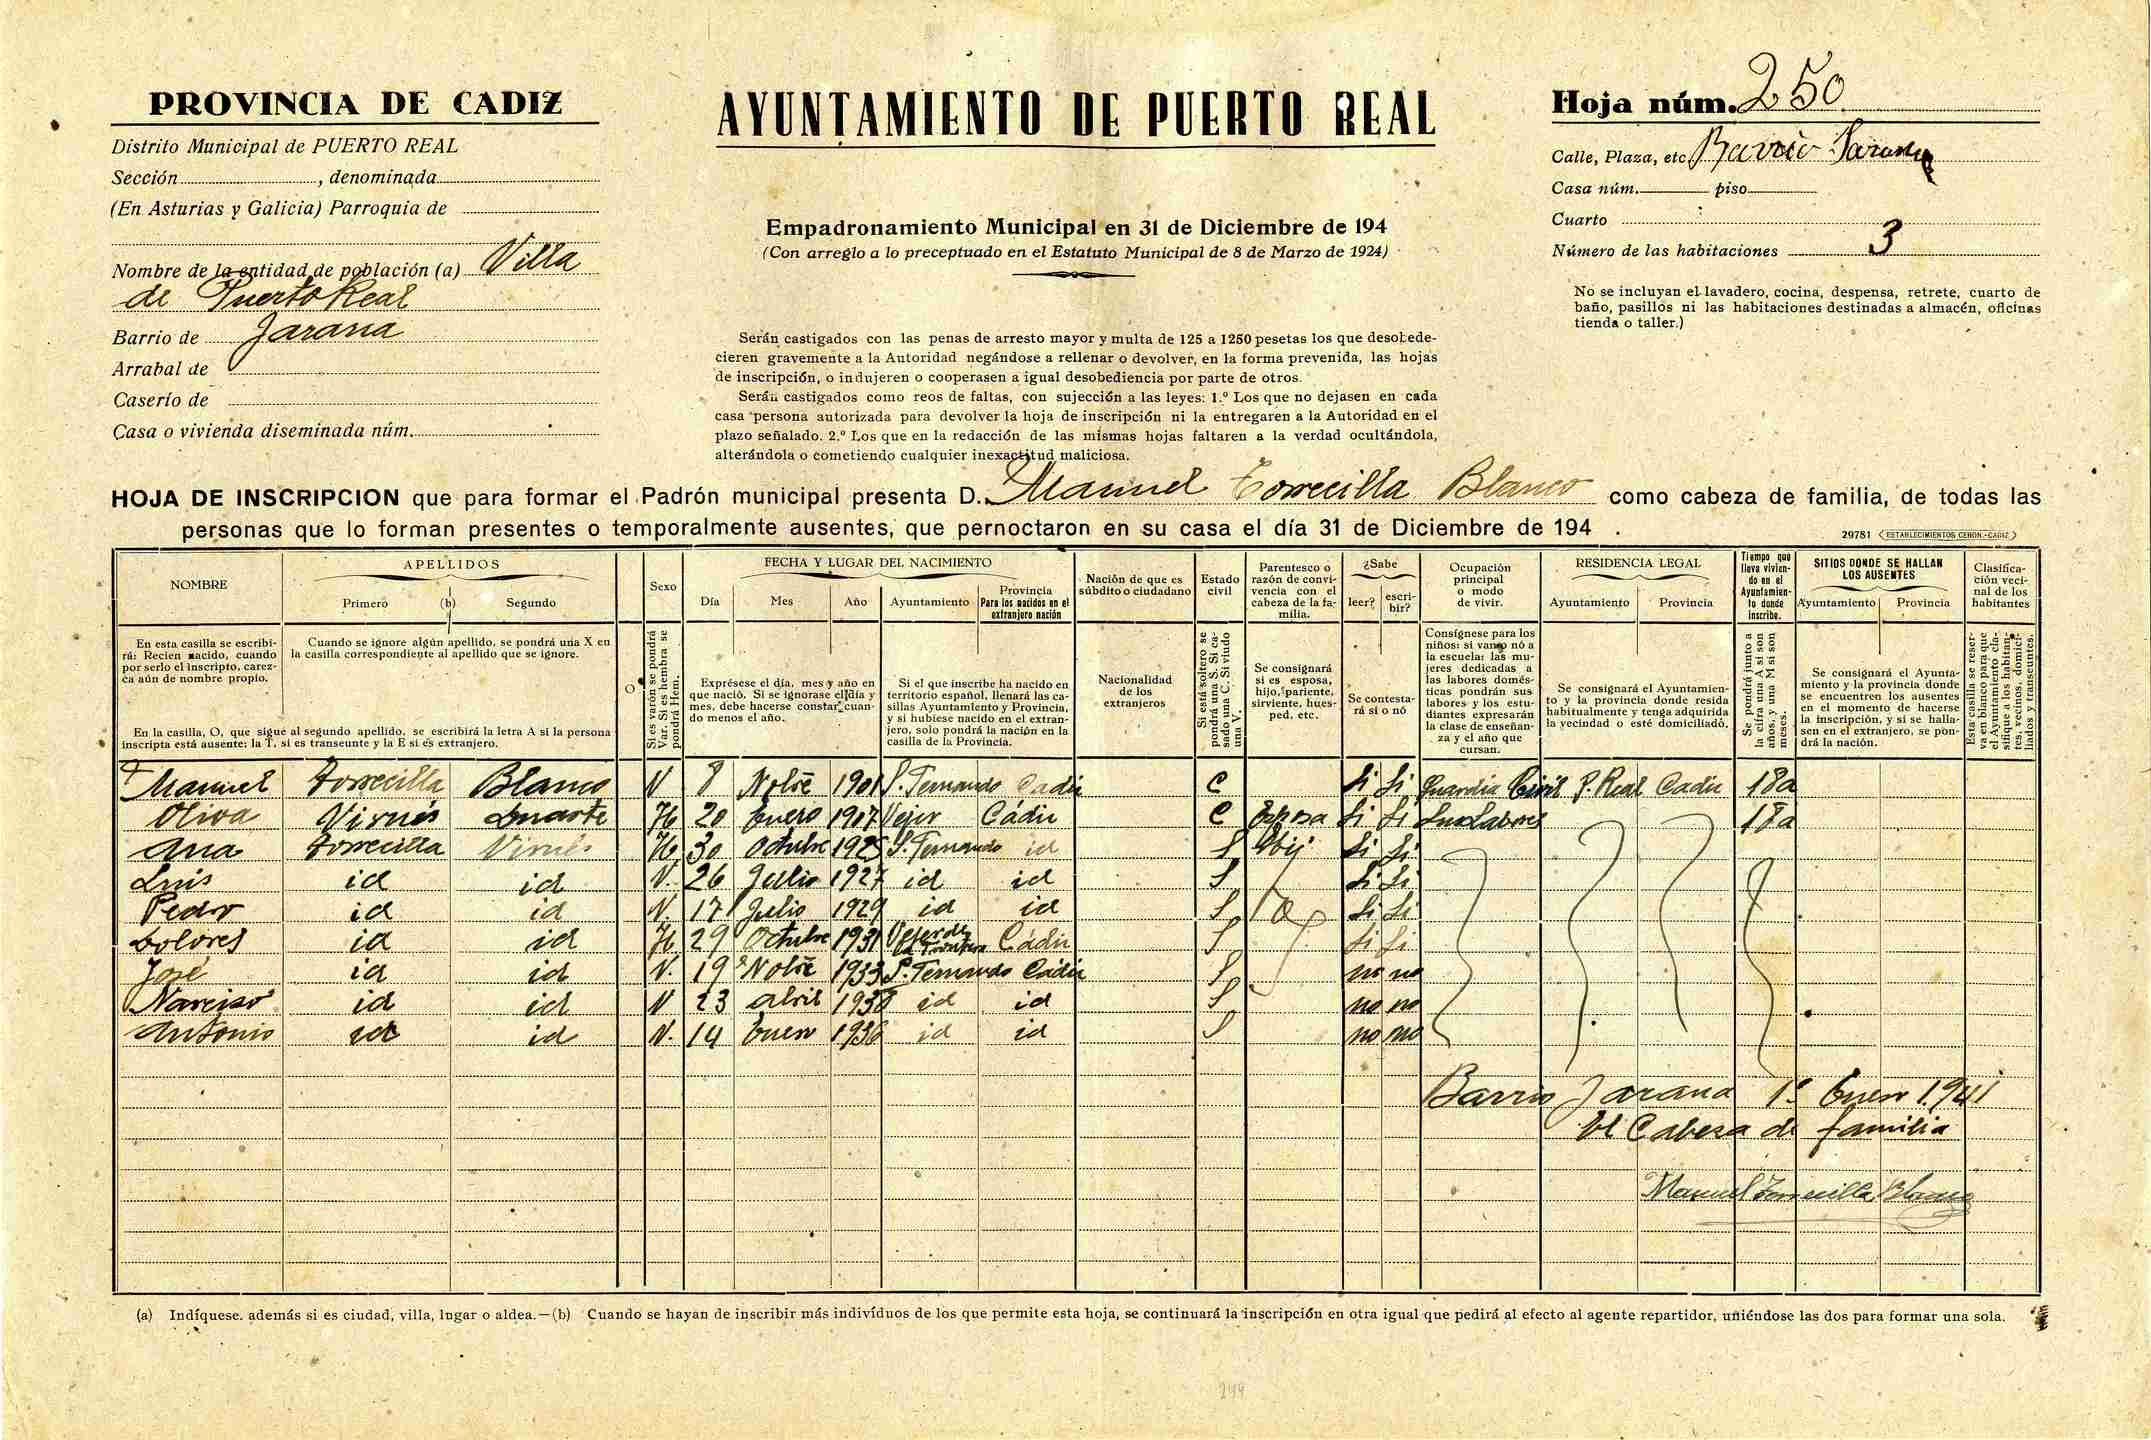 PROVINCIA DE CADIZ
Distrito Municipal de PUERTO REAL
Sección , denominada
(En Asturias y Galicia) Parroquia de
Nombre de la entidad de población (a) Villa
de Puerto Real
Barrio de Jarana
Arrabal de
Caserío de
Casa o vivienda diseminada núm.
AYUNTAMIENTO DE PUERTO REAL
Empadronamiento Municipal en 31 de Diciembre de 194
(Con arreglo a lo preceptuado en el Estatuto Municipal de 8 de Marzo de 1924)
Serán castigados con las penas de arresto mayor y multa de 125 a 1250 pesetas los que desobede-
cieren gravemente a la Autoridad negándose a rellenar o devolver, en la forma prevenida, las hojas
de inscripción, o indujeren o cooperasen a igual desobediencia por parte de otros.
Serán castigados como reos de faltas, con sujección a las leyes: 1.º Los que no dejasen en cada
casa persona autorizada para devolver la hoja de inscripción ni la entregaren a la Autoridad en el
plazo señalado. 2.º Los que en la redacción de las mismas hojas faltaren a la verdad ocultándola,
alterándola o cometiendo cualquier inexactitud maliciosa.
Hoja núm. 250
Calle, Plaza, etc. Barrio Jarana
Casa núm. piso
Cuarto
Número de las habitaciones 3
No se incluyan el lavadero, cocina, despensa, retrete, cuarto de
baño, pasillos ni las habitaciones destinadas a almacén, oficinas
tienda o taller.)
HOJA DE INSCRIPCION que para formar el Padrón municipal presenta D. Manuel Torrecilla Blanco como cabeza de familia, de todas las
personas que lo forman presentes o temporalmente ausentes, que pernoctaron en su casa el día 31 de Diciembre de 194 .
29781 ESTABLECIMIENTOS CERON.-CADIZ
NOMBRE
APELLIDOS
Primero (b) Segundo
Sexo
FECHA Y LUGAR DEL NACIMIENTO
Día Mes Año Ayuntamiento Provincia
Para los nacidos en el
extranjero nación
Nación de que es
súbdito o ciudadano
Estado
civil
Parentesco o
razón de convi-
vencia con el
cabeza de la fa-
milia.
¿Sabe
leer? escri-
bir?
Ocupación
principal
o modo
de vivir.
RESIDENCIA LEGAL
Ayuntamiento Provincia
Tiempo que
lleva vivien-
do en el
Ayuntamien-
to donde
inscribe.
SITIOS DONDE SE HALLAN
LOS AUSENTES
Ayuntamiento Provincia
Clasifica-
ción veci-
nal de los
habitantes
En esta casilla se escribi-
rá: Recien nacido, cuando
por serlo el inscripto, carez-
ca aún de nombre propio.
Cuando se ignore algún apellido, se pondrá una X en
la casilla correspondiente al apellido que se ignore.
En la casilla, O, que sigue al segundo apellido, se escribirá la letra A si la persona
inscripta está ausente: la T, si es transeunte y la E si es extranjero.
O
Si es varón se pondrá
Var. Si es hembra se
pondrá Hem.
Exprésese el día, mes y año en
que nació. Si se ignorase el día y
mes, debe hacerse constar cuan-
do menos el año.
Si el que inscribe ha nacido en
territorio español, llenará las ca-
sillas Ayuntamiento y Provincia,
y si hubiese nacido en el extran-
jero, solo pondrá la nación en la
casilla de la Provincia.
Nacionalidad
de los
extranjeros
Si está soltero se
pondrá una S. Si ca-
sado una C. Si viudo
una V.
Se consignará
si es esposa,
hijo, pariente,
sirviente, hues-
ped, etc.
Se contesta-
rá si o nó
Consígnese para los
niños: si van o nó a
la escuela: las mu-
jeres dedicadas a
las labores domés-
ticas pondrán sus
labores y los estu-
diantes expresarán
la clase de enseñan-
za y el año que
cursan.
Se consignará el Ayuntamien-
to y la provincia donde resida
habitualmente y tenga adquirida
la vecindad o esté domiciliado.
Se pondrá junto a
la cifra una A si son
años, y una M si son
meses.
Se consignará el Ayunta-
miento y la provincia donde
se encuentren los ausentes
en el momento de hacerse
la inscripción, y si se halla-
sen en el extranjero, se pon-
drá la nación.
Esta casilla se reser-
va en blanco para que
el Ayuntamiento cla-
sifique a los habitan-
tes, vecinos, domici-
liados y transeuntes.
Manuel Torrecilla Blanco V 8 Nobre 1901 S. Fernando Cadiz C Si Si Guardia Civil P. Real Cadiz 18a
Oliva Virués Duarte H 20 Enero 1907 Vejer Cádiz C Esposa Si Si Sus Labores 18a
Ana Torrecilla Virués H. 30 Octubre 1925 S. Fernando id S Hij Si Si
Luis id id V. 26 Julio 1927 id id S Si Si
Pedro id id V. 17 Julio 1929 id id S Si Si
Dolores id id H 29 Octubre 1931 Vejer de la Frontera Cádiz S Si Si
José id id V. 19 Nobre 1933 S. Fernando Cádiz S no no
Narciso id id V 23 abril 1938 id id S no no
Antonio id id V. 14 Enero 1936 id id S no no
Barrio Jarana 1º Enero 1.941
El Cabeza de familia
Manuel Torrecilla Blanco
(a) Indíquese, además si es ciudad, villa, lugar o aldea.—(b) Cuando se hayan de inscribir más individuos de los que permite esta hoja, se continuará la inscripción en otra igual que pedirá al efecto al agente repartidor, uniéndose las dos para formar una sola.
249